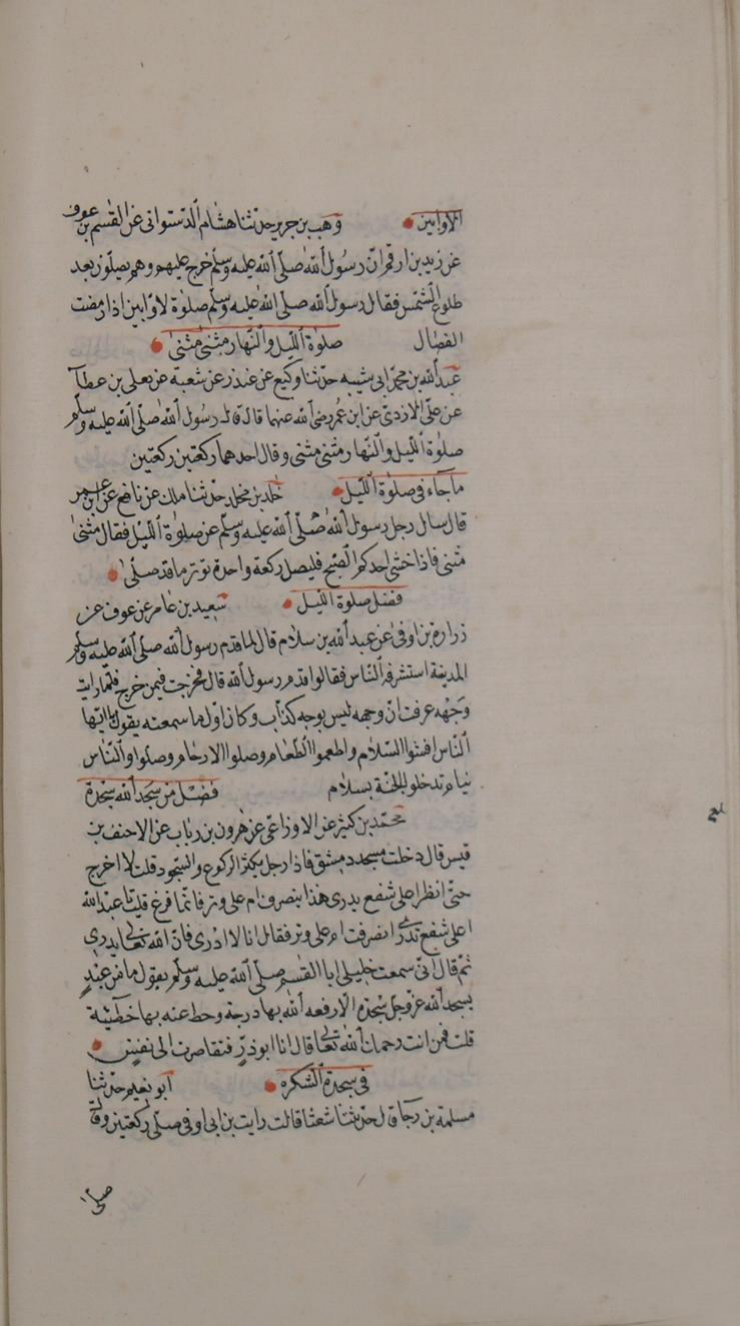 الاوابين وهب بن جرير حدثنا هشام الدستوانى عن القسم بن عوف
عن زيد بن ارقم ان رسول الله صلى الله عليه وسلم خرج عليهم وهم يصلون بعد
طلوع الشمس فقال رسول الله صلى الله عليه وسلم صلوة لاوابين اذا رمضت
الفصال صلوة الليل والنهار مثنى مثنى
عبد الله بن محمد ابى شيبه حدثنا وكيع عن غندر عن شعبة عن يعلى بن عطآ
عن على الازدى عن ابن عمر رضى الله عنهما قال قال رسول الله صلى الله عليه وسلم
صلوة الليل والنهار مثنى مثنى وقال احدهما ركعتين ركعتين
ما جآء فى صلوة الليل خلد بن مخلد حدثنا ملك عن نافع عن ابن عمر
قال سال رجل رسول الله صلى الله عليه وسلم عن صلوة الليل فقال مثنى
مثنى فاذا خشى احدكم الصبح فليصل ركعة واحدة توتر ما قد صلى
فضل صلوة الليل سعيد بن عامر عن عوف عن
زرارة بن اوفى عن عبد الله بن سلام قال لما قدم رسول الله صلى الله عليه وسلم
المدينة استشرفه الناس فقالوا قدم رسول الله قال فخرجت فيمن خرج فلما رايت
وجهه عرفت ان وجهه ليس بوجه كذاب وكان اول ما سمعته يقول يا ايها
الناس افشوا السلام واطعموا الطعام وصلوا الارحام وصلوا والناس
نيام تدخلوا الجنة بسلام فضل من سجد الله سجدة
محمد بن كثير عن الاوزاعى عن هرون بن رياب عن الاحنف بن
قيس قال دخلت مسجد دمشق فاذا رجل يكثر الركوع والسجود قلت لا اخرج
حتى انظر اعلى شفع يدرى هذا ينصرف ام على وتر فلما فرغ قلت يا عبد الله
اعلى شفع تدرى انصرفت ام على وتر فقال انا لا ادرى فان الله تعالى يدرى
ثم قال انى سمعت خليلى ابا القسم صلى الله عليه وسلم يقول ما من عبد
يسجد الله عز وجل سجدة الا رفعه الله بها درجة وحط عنه بها خطيئة
قلت فمن انت رحمك الله تعالى قال انا ابو ذر فتقاصرت الى نفسى
فى سجدة الشكره ابو نعيم حدثنا
مسلمة بن رجآ قال حدثتنا شعثا قالت رايت بن ابى اوفى صلى ركعتين وقال
صلى